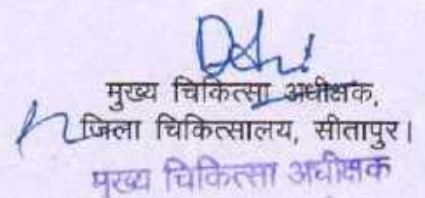 मुख्य चिकित्सा अधीक्षक,
जिला चिकित्सालय, सीतापुर।
मुख्य चिकित्सा अधीक्षक